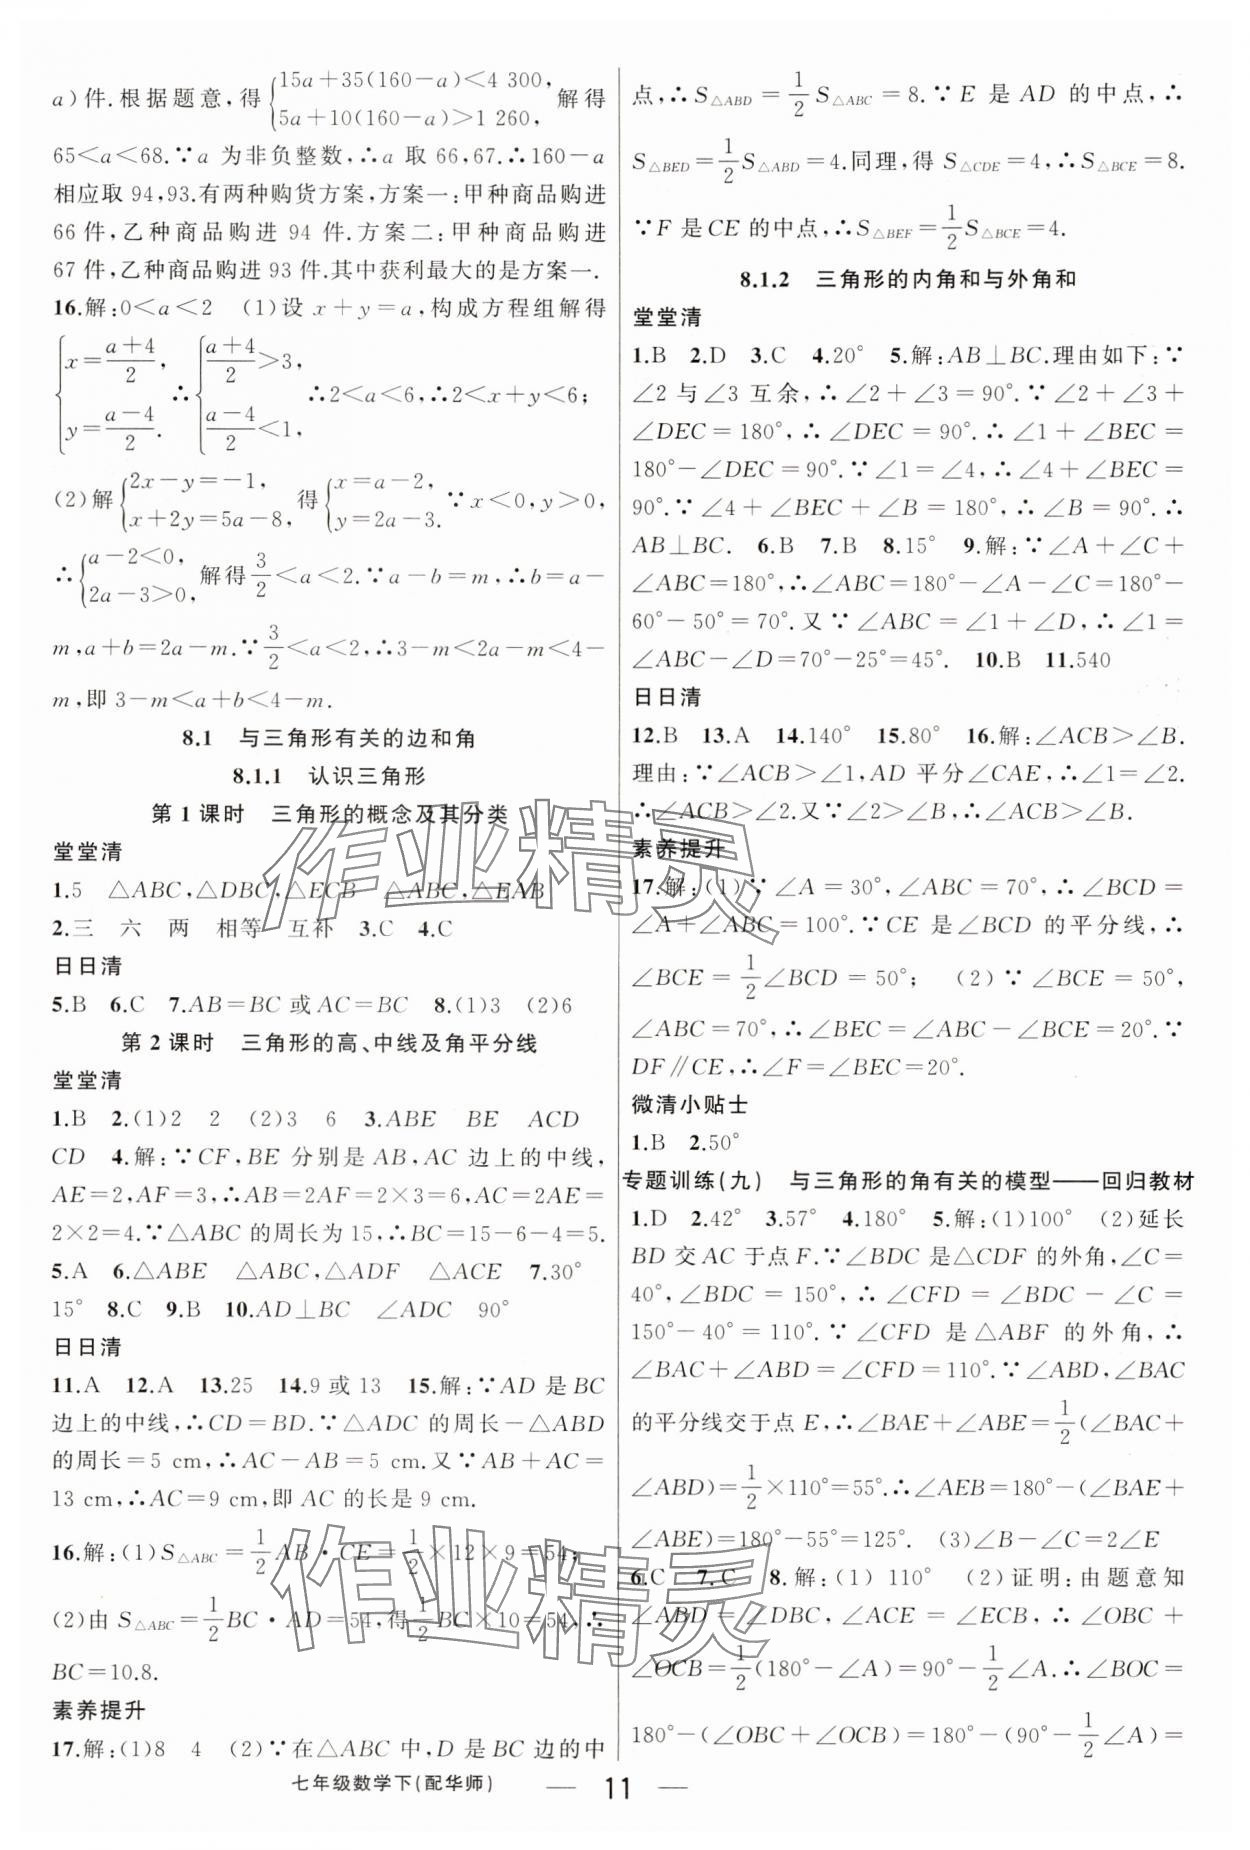 a)件.根据题意,得{15a+35(160-a)<4 300, 5a+10(160-a)>1 260, 解得
65<a<68.∵a 为非负整数,∴a 取 66,67.∴160-a
相应取 94,93.有两种购货方案,方案一:甲种商品购进
66 件,乙种商品购进 94 件.方案二:甲种商品购进
67 件,乙种商品购进 93 件.其中获利最大的是方案一.
16.解:0<a<2 (1)设 x+y=a,构成方程组解得
{x=(a+4)/2, y=(a-4)/2. ∴{(a+4)/2>3, (a-4)/2<1, ∴2<a<6,∴2<x+y<6;
(2)解{2x-y=-1, x+2y=5a-8, 得{x=a-2, y=2a-3. ∵x<0,y>0,
∴{a-2<0, 2a-3>0, 解得3/2<a<2.∵a-b=m,∴b=a-
m,a+b=2a-m.∵3/2<a<2,∴3-m<2a-m<4-
m,即 3-m<a+b<4-m.
8.1 与三角形有关的边和角
8.1.1 认识三角形
第 1 课时 三角形的概念及其分类
堂堂清
1.5 △ABC,△DBC,△ECB △ABC,△EAB
2.三 六 两 相等 互补 3.C 4.C
日日清
5.B 6.C 7.AB=BC 或 AC=BC 8.(1)3 (2)6
第 2 课时 三角形的高、中线及角平分线
堂堂清
1.B 2.(1)2 2 (2)3 6 3.ABE BE ACD
CD 4.解:∵CF,BE 分别是 AB,AC 边上的中线,
AE=2,AF=3,∴AB=2AF=2×3=6,AC=2AE=
2×2=4.∵△ABC 的周长为 15,∴BC=15-6-4=5.
5.A 6.△ABE △ABC,△ADF △ACE 7.30°
15° 8.C 9.B 10.AD⊥BC ∠ADC 90°
日日清
11.A 12.A 13.25 14.9 或 13 15.解:∵AD 是 BC
边上的中线,∴CD=BD.∵△ADC 的周长-△ABD
的周长=5 cm,∴AC-AB=5 cm.又∵AB+AC=
13 cm,∴AC=9 cm,即 AC 的长是 9 cm.
16.解:(1)S△ABC=1/2AB·CE=1/2×12×9=54;
(2)由 S△ABC=1/2BC·AD=54,得1/2BC×10=54,∴
BC=10.8.
素养提升
17.解:(1)8 4 (2)∵在△ABC 中,D 是 BC 边的中
点,∴S△ABD=1/2S△ABC=8.∵E 是 AD 的中点,∴
S△BED=1/2S△ABD=4.同理,得 S△CDE=4,∴S△BCE=8.
∵F 是 CE 的中点,∴S△BEF=1/2S△BCE=4.
8.1.2 三角形的内角和与外角和
堂堂清
1.B 2.D 3.C 4.20° 5.解:AB⊥BC.理由如下:∵
∠2 与∠3 互余,∴∠2+∠3=90°.∵∠2+∠3+
∠DEC=180°,∴∠DEC=90°.∴∠1+∠BEC=
180°-∠DEC=90°.∵∠1=∠4,∴∠4+∠BEC=
90°.∵∠4+∠BEC+∠B=180°,∴∠B=90°.∴
AB⊥BC. 6.B 7.B 8.15° 9.解:∵∠A+∠C+
∠ABC=180°,∴∠ABC=180°-∠A-∠C=180°-
60°-50°=70°.又∵∠ABC=∠1+∠D,∴∠1=
∠ABC-∠D=70°-25°=45°. 10.B 11.540
日日清
12.B 13.A 14.140° 15.80° 16.解:∠ACB>∠B.
理由:∵∠ACB>∠1,AD 平分∠CAE,∴∠1=∠2.
∴∠ACB>∠2.又∵∠2>∠B,∴∠ACB>∠B.
素养提升
17.解:(1)∵∠A=30°,∠ABC=70°,∴∠BCD=
∠A+∠ABC=100°.∵CE 是∠BCD 的平分线,∴
∠BCE=1/2∠BCD=50°; (2)∵∠BCE=50°,
∠ABC=70°,∴∠BEC=∠ABC-∠BCE=20°.∵
DF∥CE,∴∠F=∠BEC=20°.
微清小贴士
1.B 2.50°
专题训练(九) 与三角形的角有关的模型——回归教材
1.D 2.42° 3.57° 4.180° 5.解:(1)100° (2)延长
BD 交 AC 于点 F.∵∠BDC 是△CDF 的外角,∠C=
40°,∠BDC=150°,∴∠CFD=∠BDC-∠C=
150°-40°=110°.∵∠CFD 是△ABF 的外角,∴
∠BAC+∠ABD=∠CFD=110°.∵∠ABD,∠BAC
的平分线交于点 E,∴∠BAE+∠ABE=1/2(∠BAC+
∠ABD)=1/2×110°=55°.∴∠AEB=180°-(∠BAE+
∠ABE)=180°-55°=125°. (3)∠B-∠C=2∠E
6.C 7.C 8.解:(1)110° (2)证明:由题意知
∠ABD=∠DBC,∠ACE=∠ECB,∴∠OBC+
∠OCB=1/2(180°-∠A)=90°-1/2∠A.∴∠BOC=
180°-(∠OBC+∠OCB)=180°-(90°-1/2∠A)=
七年级数学下(配华师) — 11 —
作业精灵
作业精灵